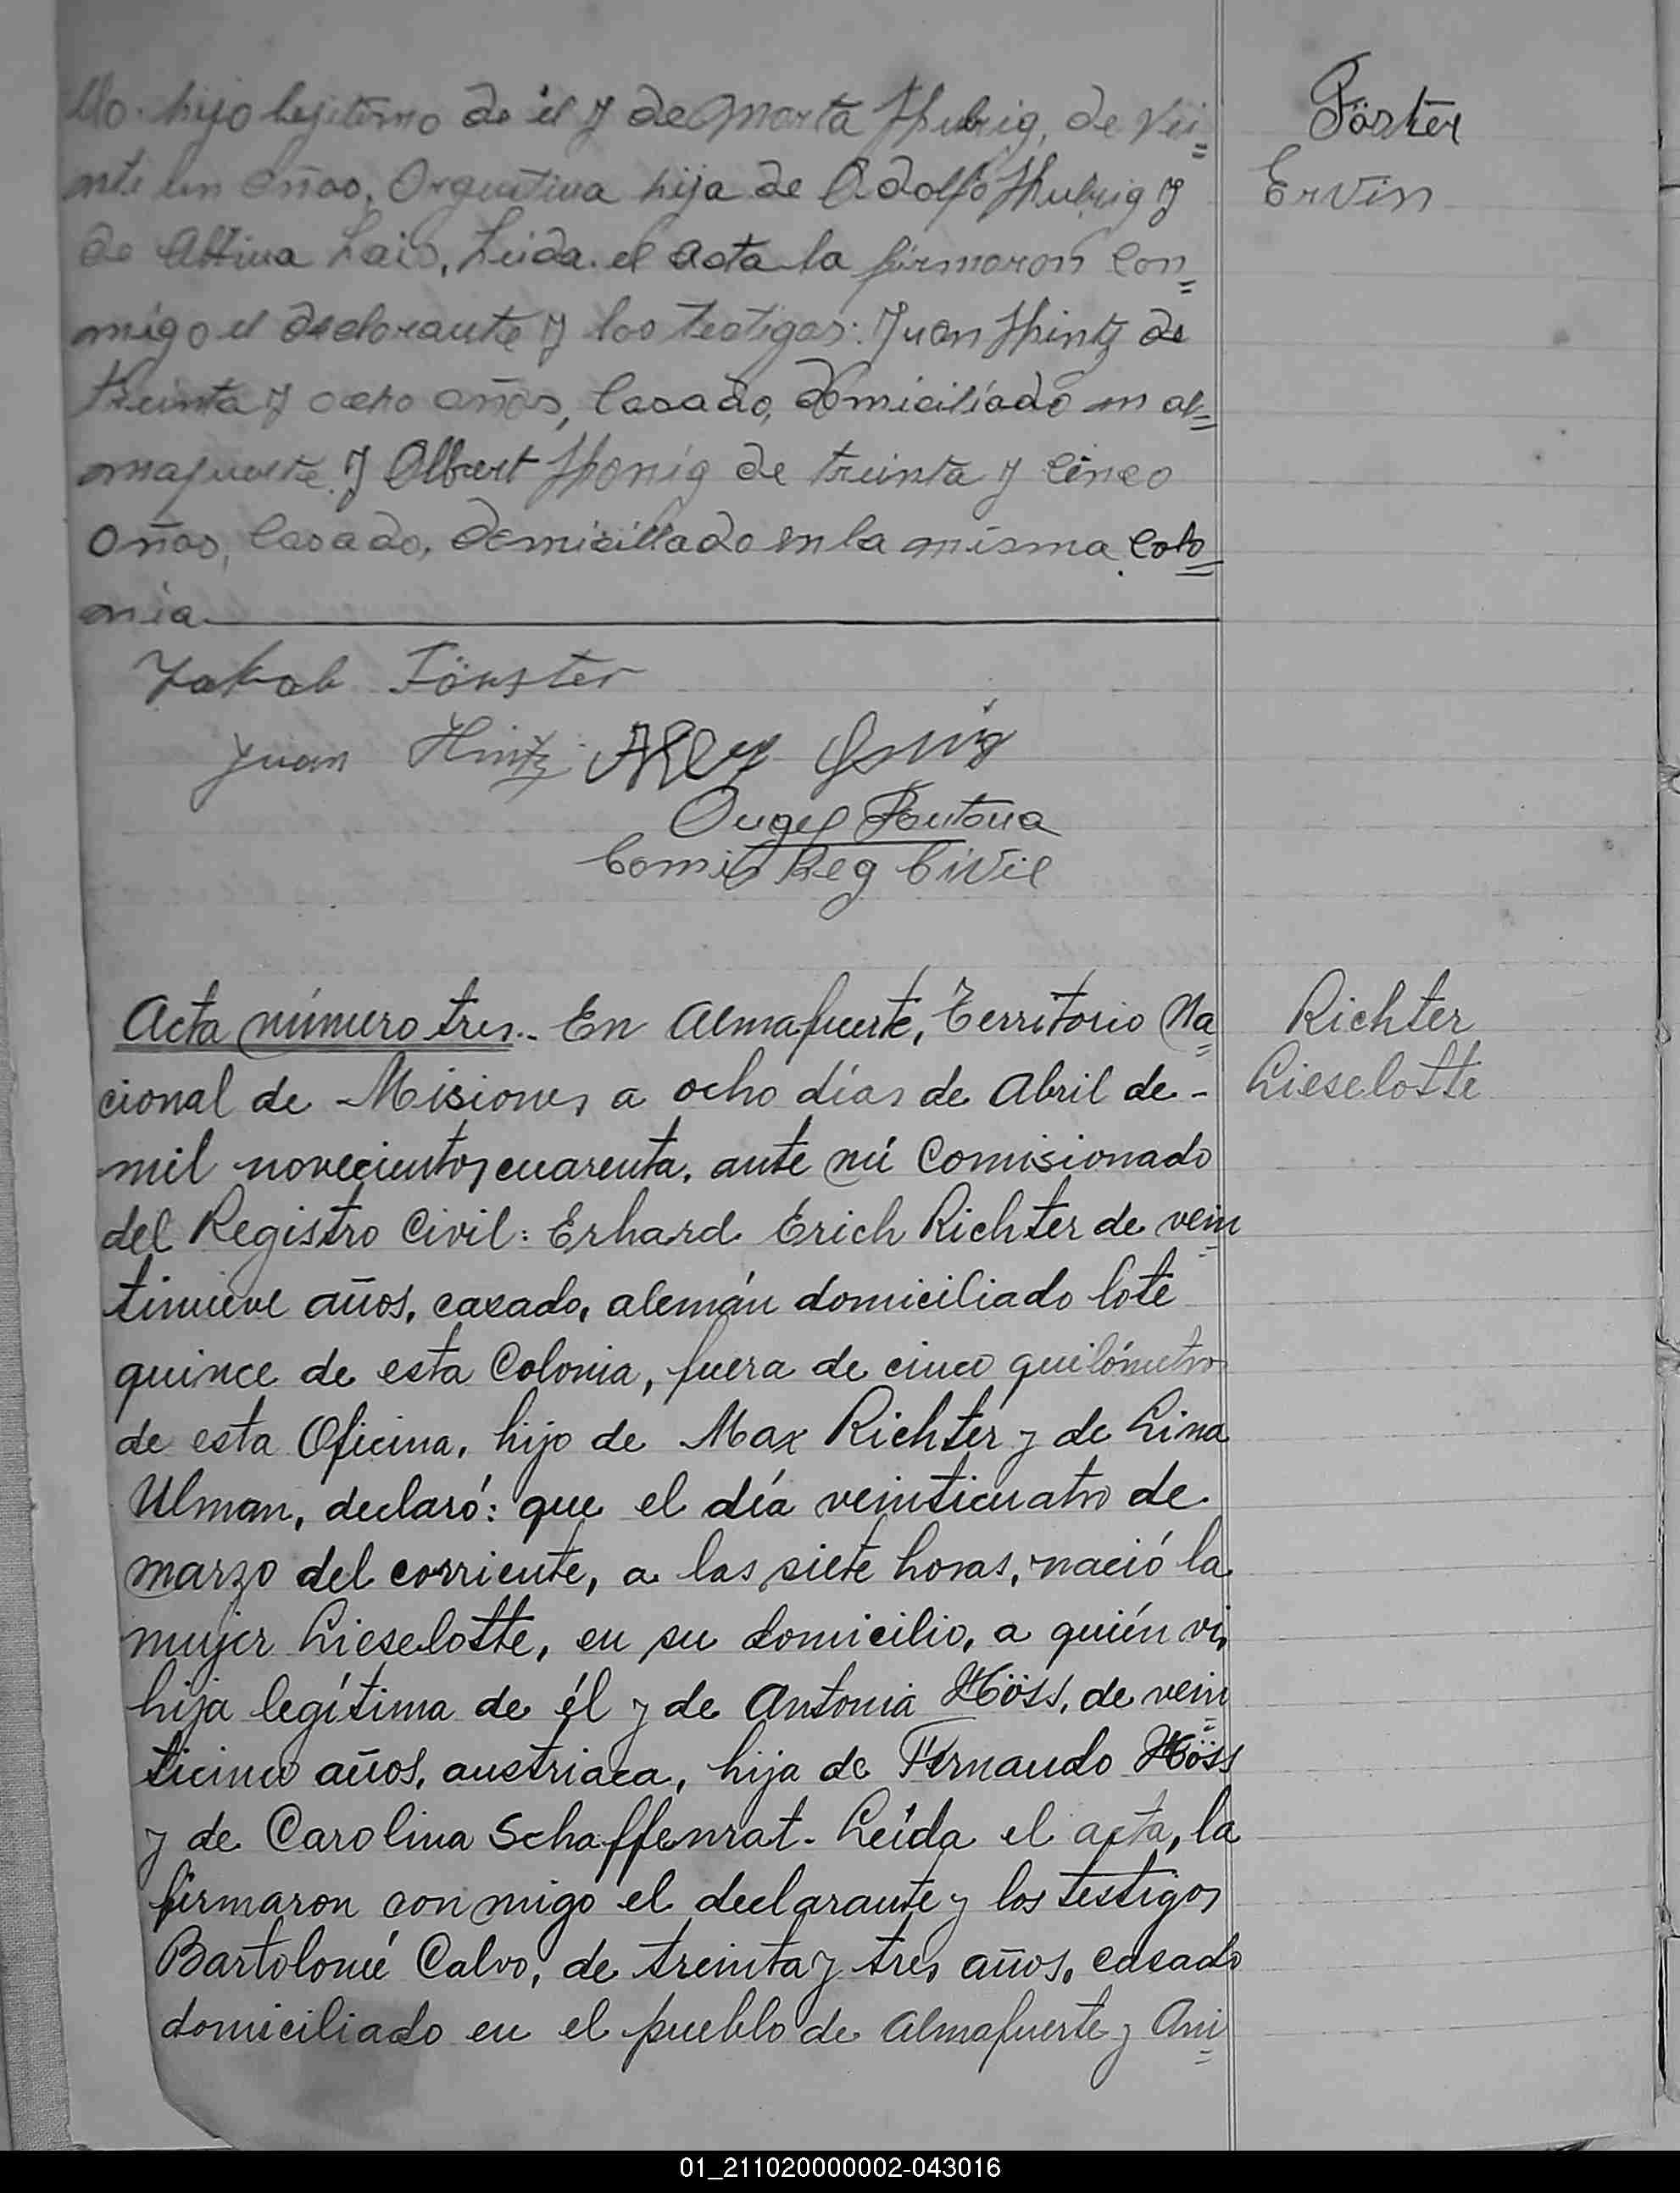 llo. hijo legitimo de él y de Marta Hubrig, de vei=
nte un años, Argentina hija de Adolfo Hubrig y
de Lais, Leida el acta la firmaron con=
migo el declarante y los testigos: Juan Hintz de
treinta y ocho años, Casado, domiciliado en al=
mafuerte y Albert Honig de treinta y cinco
años, Casado, domicillado en la misma colo=
nia.
Förster
Ervin
Jakob Förster
Juan Hintz
Angel Fontana
Comis Reg Civil
Acta número tres.- En Almafuerte, Territorio Na=
cional de Misiones a ocho días de Abril de-
mil novecientos cuarenta, ante mí Comisionado
del Registro Civil: Erhard Erich Richter de vein=
tinueve años, casado, alemán domiciliado lote
quince de esta Colonia, fuera de cinco quilómetros
de esta Oficina, hijo de Max Richter y de Lina
Ulman, declaró: que el día veinticuatro de
marzo del corriente, a las siete horas, nació la
mujer Lieselotte, en su domicilio, a quién vi,
hija legítima de él y de Antonia Höss, de vein=
ticinco años, austriaca, hija de Fernando Höss
y de Carolina Schaffenrat. Leída el acta, la
firmaron conmigo el declarante y los testigos
Bartolomé Calvo, de treinta y tres años, casado
domiciliado en el pueblo de Almafuerte y Ani=
Richter
Lieselotte
01_211020000002-043016